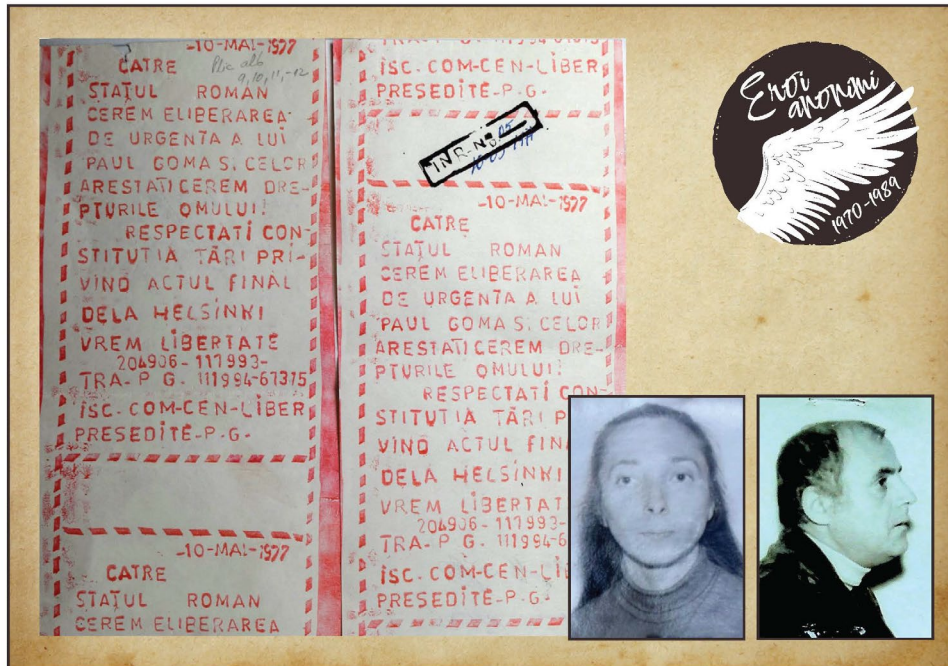 -10-MAI-1977
CATRE
Plic alb
9,10,11,-12
STATUL ROMAN
CEREM ELIBERAREA
DE URGENTA A LUI
PAUL GOMA S. CELOR
ARESTATI CEREM DRE-
PTURILE OMULUI!
RESPECTATI CON-
STITUTIA TĂRI PRI-
VIND ACTUL FINAL
DELA HELSINKI
VREM LIBERTATE
204906-117993-
TRA-P G. 111994-67375
ISC. COM-CEN-LIBER
PRESEDITE-P-G-
-10-MAI-1977
CATRE
STATUL ROMAN
CEREM ELIBERAREA
ISC. COM-CEN-LIBER
PRESEDITE-P-G-
INR-N
-10-MAI-1977
CATRE
STATUL ROMAN
CEREM ELIBERAREA
DE URGENTA A LUI
PAUL GOMA S. CELOR
ARESTATI CEREM DRE-
PTURILE OMULUI!
RESPECTATI CON-
STITUTIA TĂRI P
VIND ACTUL FINA
DELA HELSINKI
VREM LIBERTAT
204906-117993-
TRA-P G. 111994-6
ISC. COM-CEN-LI
PRESEDITE-P-G-
Eroi
anonimi
1970-1989